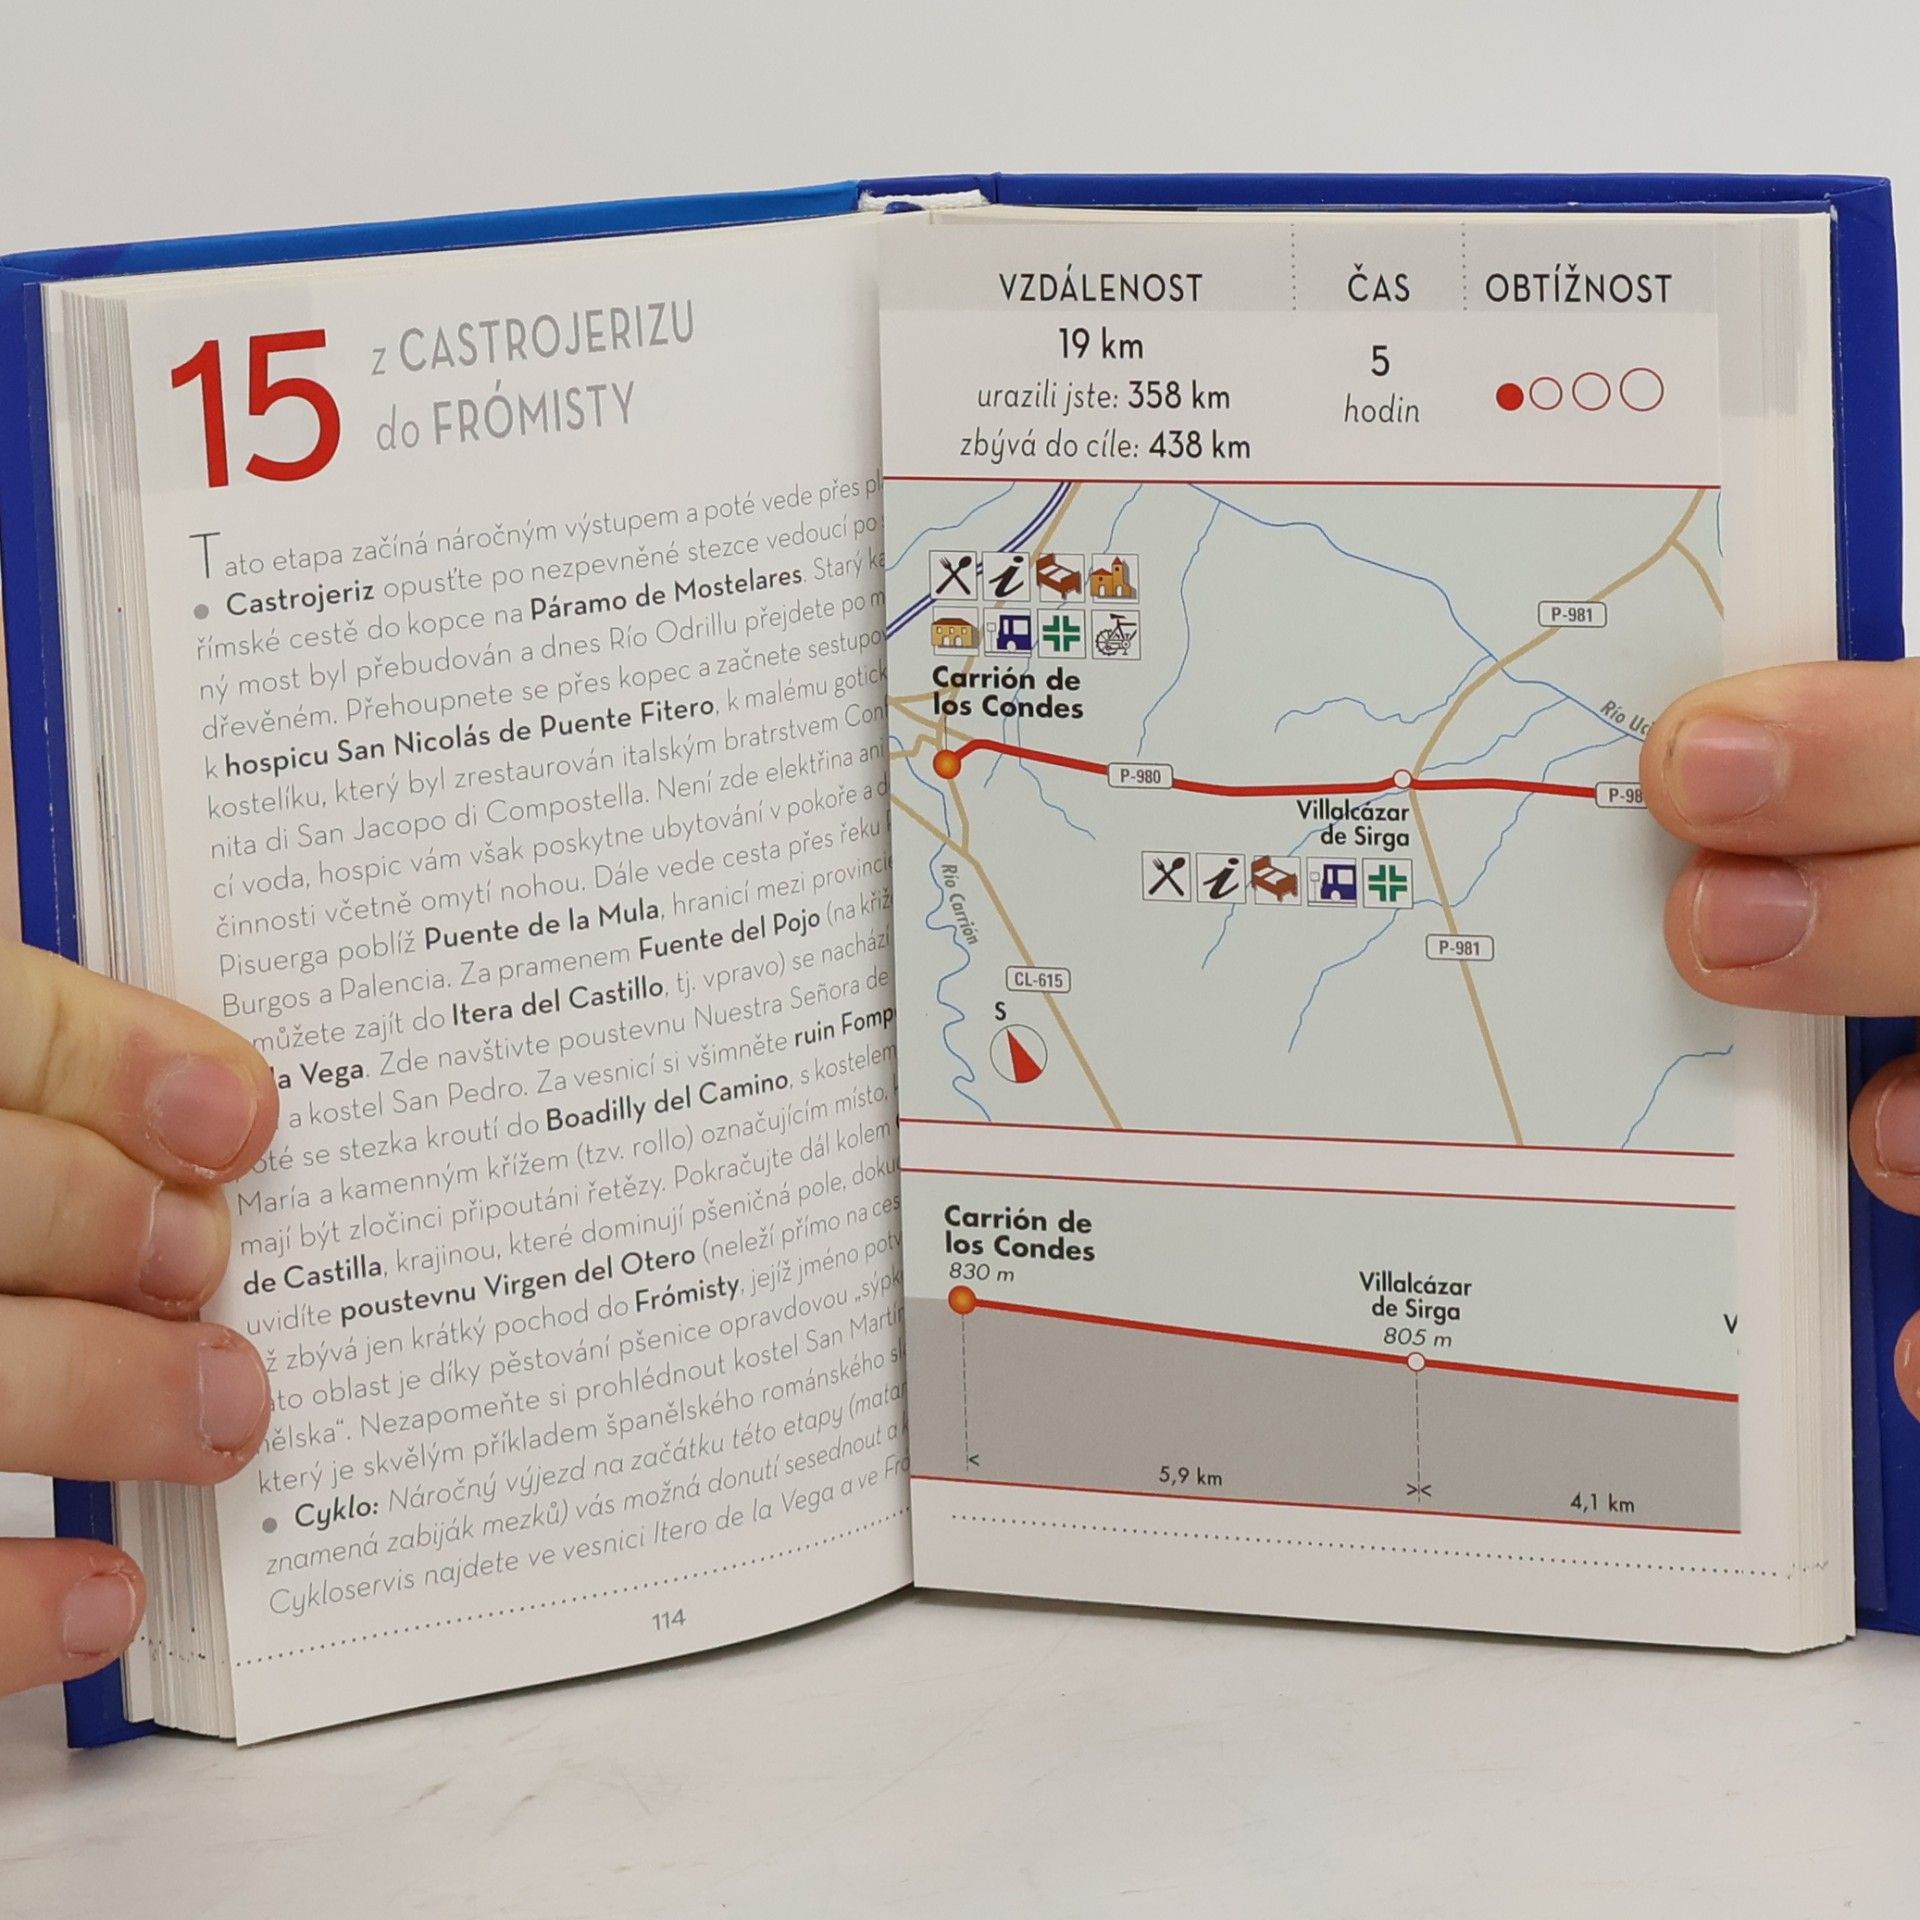 15
z CASTROJERIZU
do FRÓMISTY
Tato etapa začíná náročným výstupem a poté vede přes
Castrojeriz opusťte po nezpevněné stezce vedoucí po
římské cestě do kopce na Páramo de Mostelares. Starý
ný most byl přebudován a dnes Río Odrillu přejdete po
dřevěném. Přehoupnete se přes kopec a začnete
k hospicu San Nicolás de Puente Fitero, k malému
kostelíku, který byl zrestaurován italským bratrstvem
nita di San Jacopo di Compostella. Není zde elektřina ani
cí voda, hospic vám však poskytne ubytování v pokoře a
činnosti včetně omytí nohou. Dále vede cesta přes řeku
Pisuerga poblíž Puente de la Mula, hranicí mezi
Burgos a Palencia. Za pramenem Fuente del Pojo (na
můžete zajít do Itera del Castillo, tj. vpravo) se nachází
la Vega. Zde navštivte poustevnu Nuestra Señora de
a kostel San Pedro. Za vesnicí si všimněte ruin
se stezka kroutí do Boadilly del Camino, s kostelem
María a kamenným křížem (tzv. rollo) označujícím místo,
mají být zločinci připoutáni řetězy. Pokračujte dál kolem
de Castilla, krajinou, které dominují pšeničná pole,
uvidíte poustevnu Virgen del Otero (neleží přímo na
zbývá jen krátký pochod do Frómisty, jejíž jméno
oblast je díky pěstování pšenice opravdovou
Nezapomeňte si prohlédnout kostel San
který je skvělým příkladem španělského románského
Cyklo: Náročný výjezd na začátku této etapy
znamená zabiják mezků) vás možná donutí sesednout a
Cykloservis najdete ve vesnici Itero de la Vega a ve
114
VZDÁLENOST
ČAS
OBTÍŽNOST
19 km
urazili jste: 358 km
zbývá do cíle: 438 km
5
hodin
P-981
Carrión de
los Condes
Río
P-980
Villalcázar
de Sirga
Río Carrión
P-981
CL-615
S
Carrión de
los Condes
830 m
Villalcázar
de Sirga
805 m
5,9 km
4,1 km